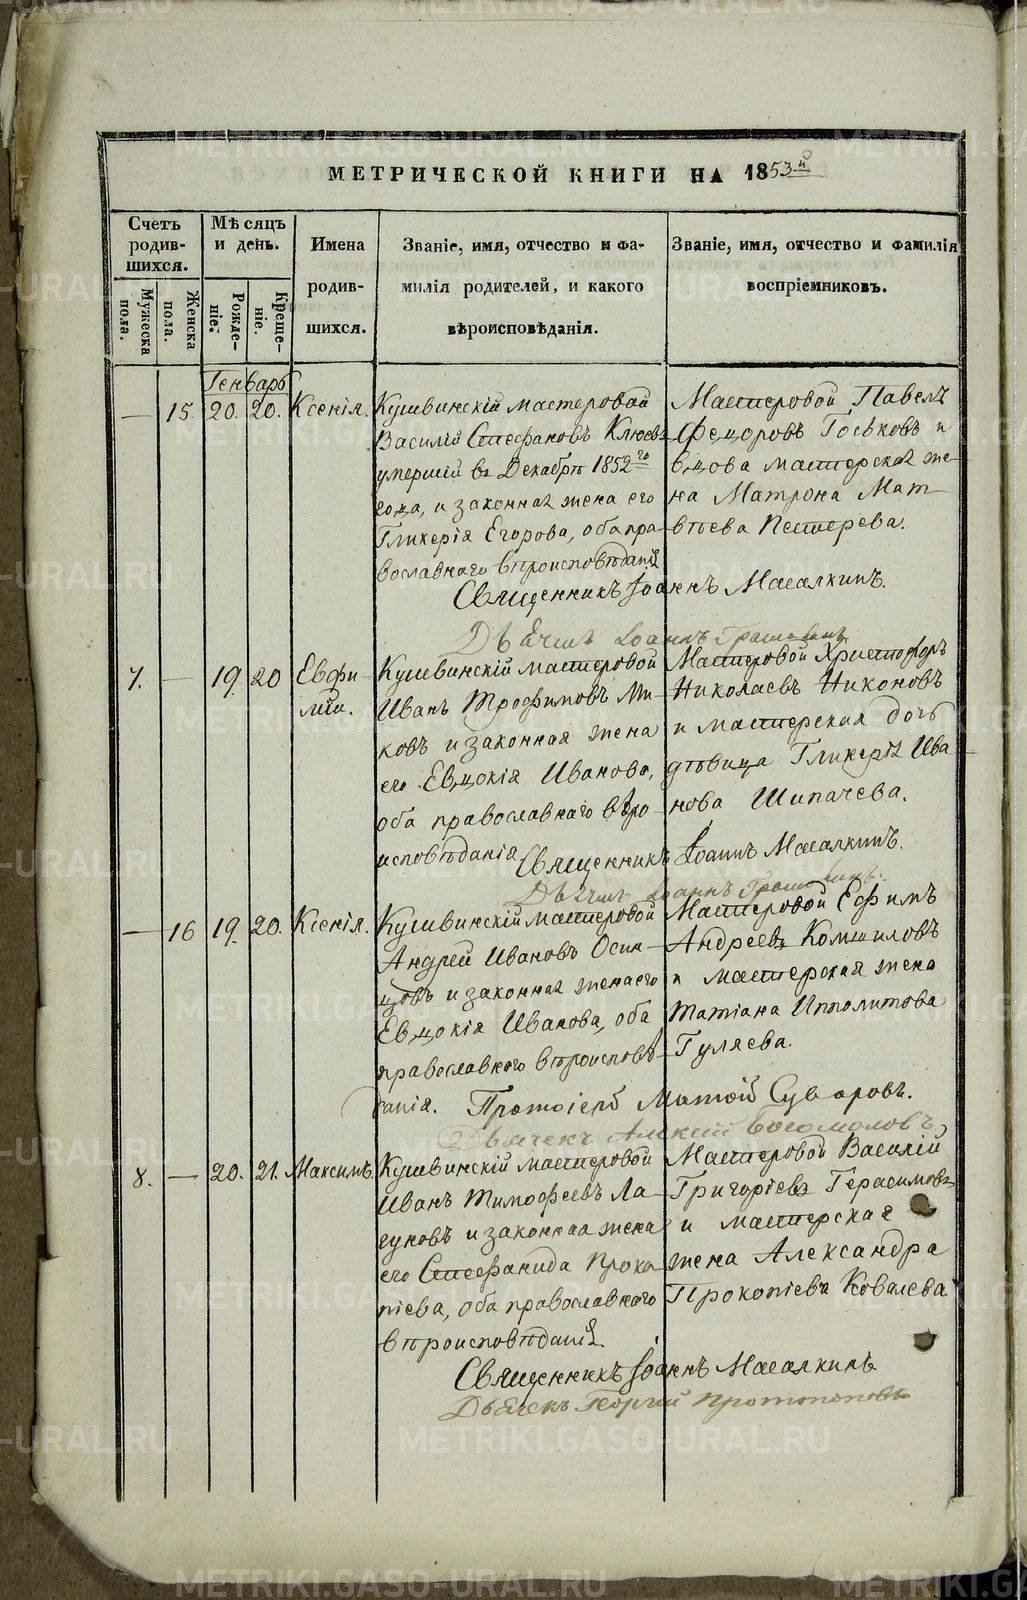 МЕТРИЧЕСКОЙ КНИГИ НА 1853й
Счетъ родив-шихся.
Мѣсяцъ и день.
Имена родив-шихся.
Званіе, имя, отчество и фа-
милія родителей, и какого
вѣроисповѣданія.
Званіе, имя, отчество и фамилія
воспріемниковъ.
Мужеска пола.
Женска пола.
Рожде-ніе.
Креще-ніе.
Генварь
— 15. 20. 20. Ксенія.
Кушвинскій мастеровой
Василій Стефановъ Клюевъ
умершій въ Декабрѣ 1852го
года, и законная жена его
Гликерія Егорова, оба пра-
вославнаго вѣроисповѣданія
Мастеровой Павелъ
Федоровъ Госьковъ и
вдова мастерская же-
на Матрона Мат-
вѣева Пестерева.
Священникъ Іоаннъ Масалкинъ.
Дьячекъ Іоаннъ
7. — 19. 20 Евфи-
мій.
Кушвинскій мастеровой
Иванъ Трофимовъ Ми-
ковъ и законная жена
его Евдокія Иванова,
оба православнаго вѣро-
исповѣданія
Мастеровой Христофоръ
Николаевъ Никоновъ
и мастерская дочь
дѣвица Гликерія Ива
нова Шипачева.
Священникъ Іоаннъ Масалкинъ.
Дьячекъ Іоаннъ
— 16 19. 20. Ксенія.
Кушвинскій мастеровой
Андрей Ивановъ Осин-
цовъ и законная жена его
Евдокія Иванова, оба
православнаго вѣроисповѣ-
данія.
Мастеровой Ефимъ
Андреевъ Комшиловъ
и мастерская жена
Татіана Ипполитова
Гуляева.
Протоіерей Матѳій Суворовъ.
Дьячекъ Алексій Богомоловъ,
8. — 20. 21. Максимъ.
Кушвинскій мастеровой
Иванъ Тимофеевъ Ла-
гуновъ и законная жена
его Стефанида Проко
піева, оба православнаго
вѣроисповѣданія
Мастеровой Василій
Григоріевъ Герасимовъ
и мастерская
жена Александра
Прокопіева Ковалева.
Священникъ Іоаннъ Масалкинъ
Дьячекъ Георгій Протопоповъ
METRIKI.GASO-URAL.RU